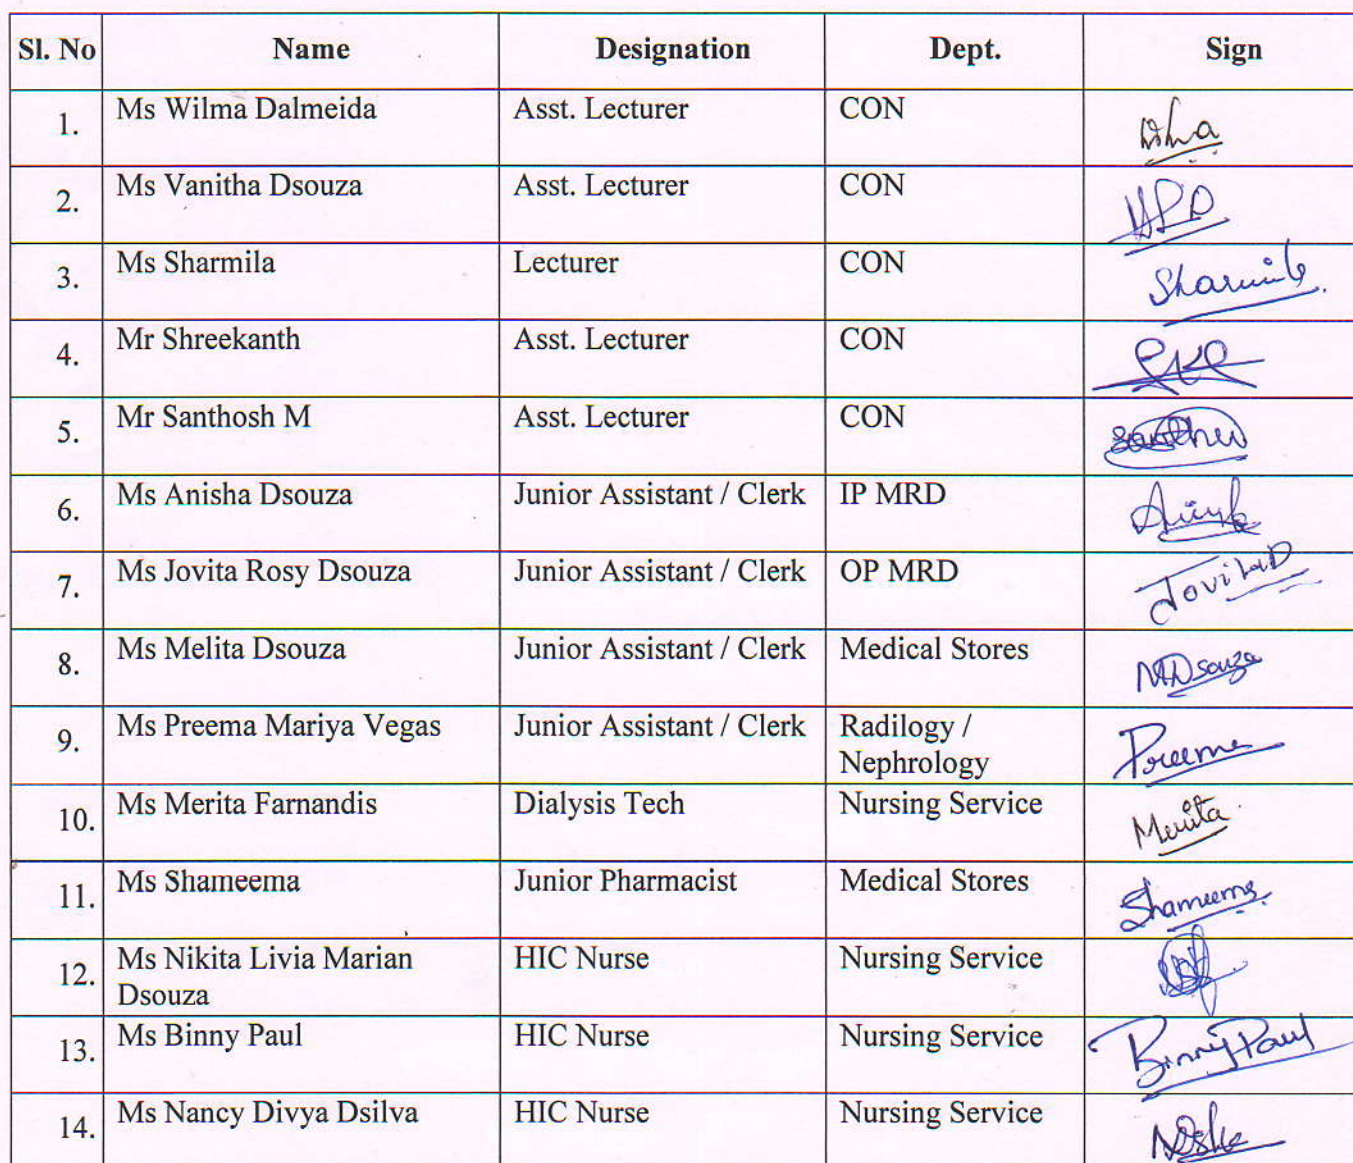 Sl. No Name Designation Dept. Sign
1. Ms Wilma Dalmeida Asst. Lecturer CON
2. Ms Vanitha Dsouza Asst. Lecturer CON
3. Ms Sharmila Lecturer CON Sharmila
4. Mr Shreekanth Asst. Lecturer CON
5. Mr Santhosh M Asst. Lecturer CON
6. Ms Anisha Dsouza Junior Assistant / Clerk IP MRD
7. Ms Jovita Rosy Dsouza Junior Assistant / Clerk OP MRD JovitaD
8. Ms Melita Dsouza Junior Assistant / Clerk Medical Stores MDsouza
9. Ms Preema Mariya Vegas Junior Assistant / Clerk Radilogy / Preema
Nephrology
10. Ms Merita Farnandis Dialysis Tech Nursing Service Merita
11. Ms Shameema Junior Pharmacist Medical Stores Shameema
12. Ms Nikita Livia Marian HIC Nurse Nursing Service
Dsouza
13. Ms Binny Paul HIC Nurse Nursing Service Binny Paul
14. Ms Nancy Divya Dsilva HIC Nurse Nursing Service